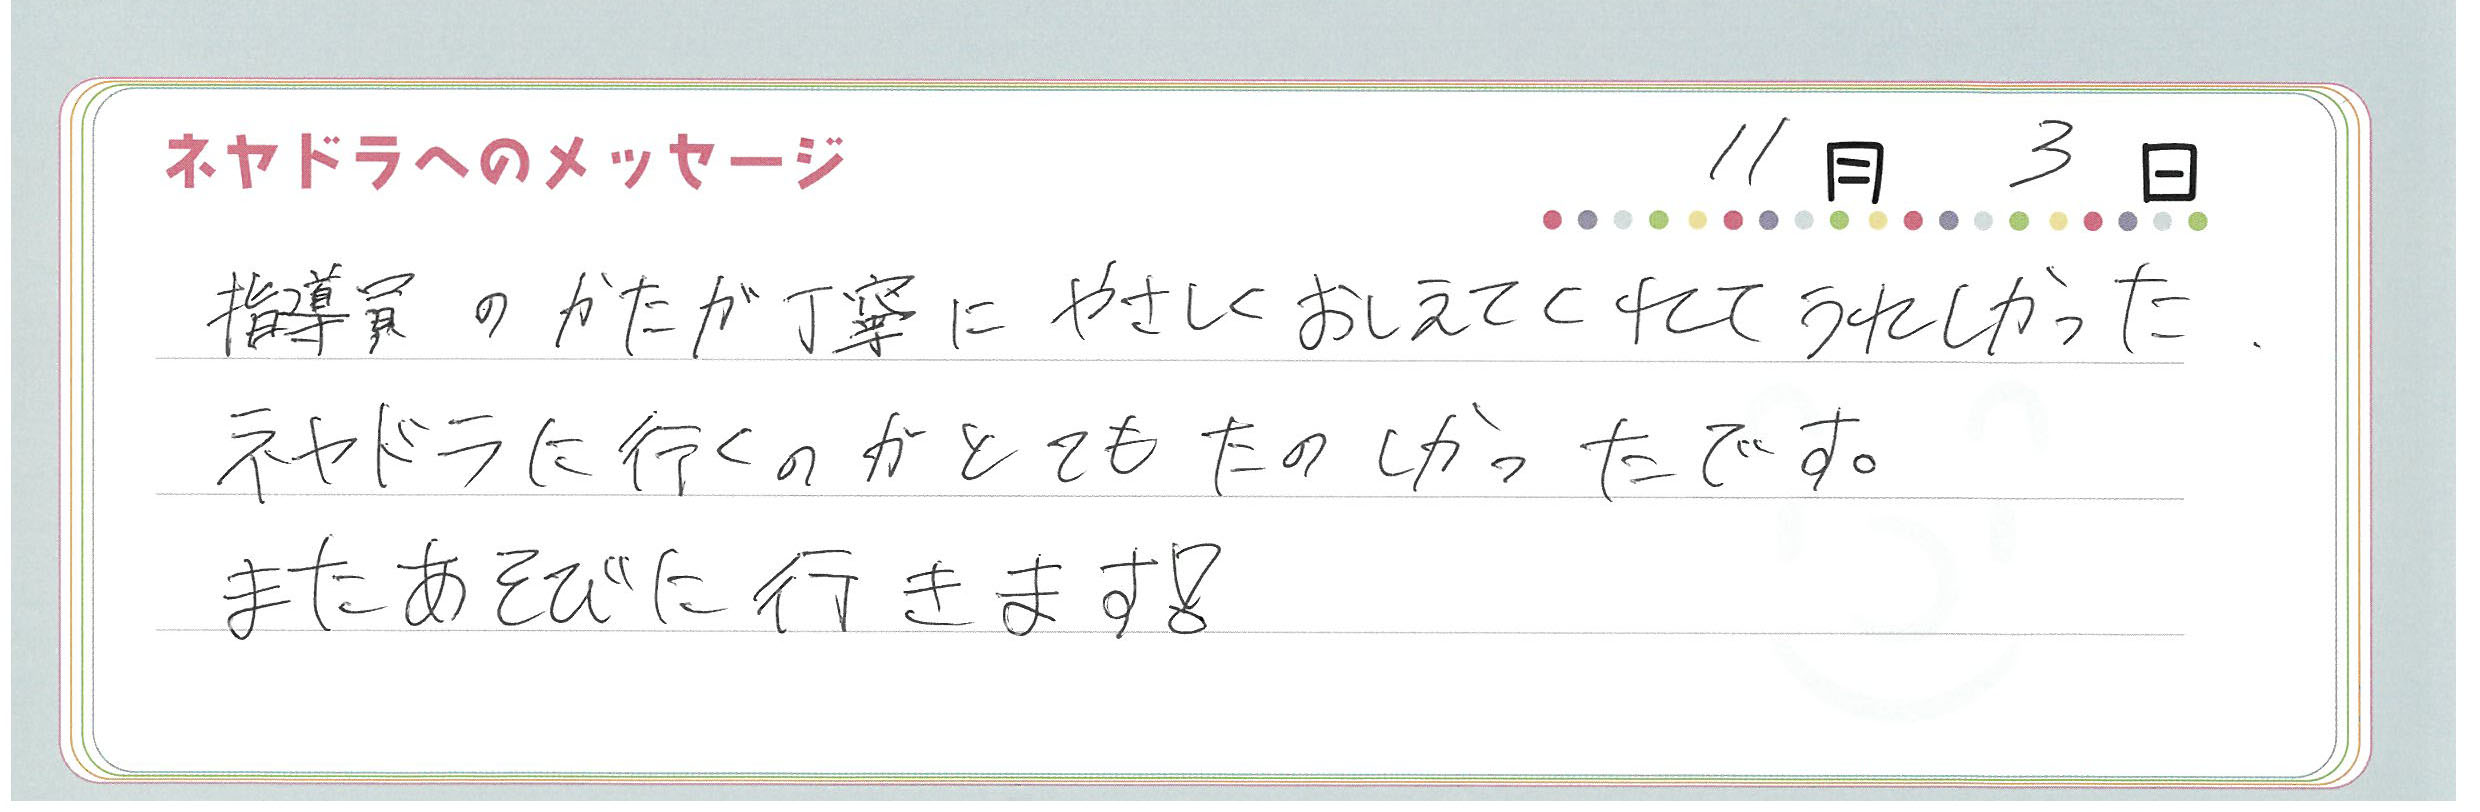 ネヤドラへのメッセージ
11月 3日
指導員のかたが丁寧にやさしくおしえてくれてうれしかった.
ネヤドラに行くのがとてもたのしかったです。
またあそびに行きます!